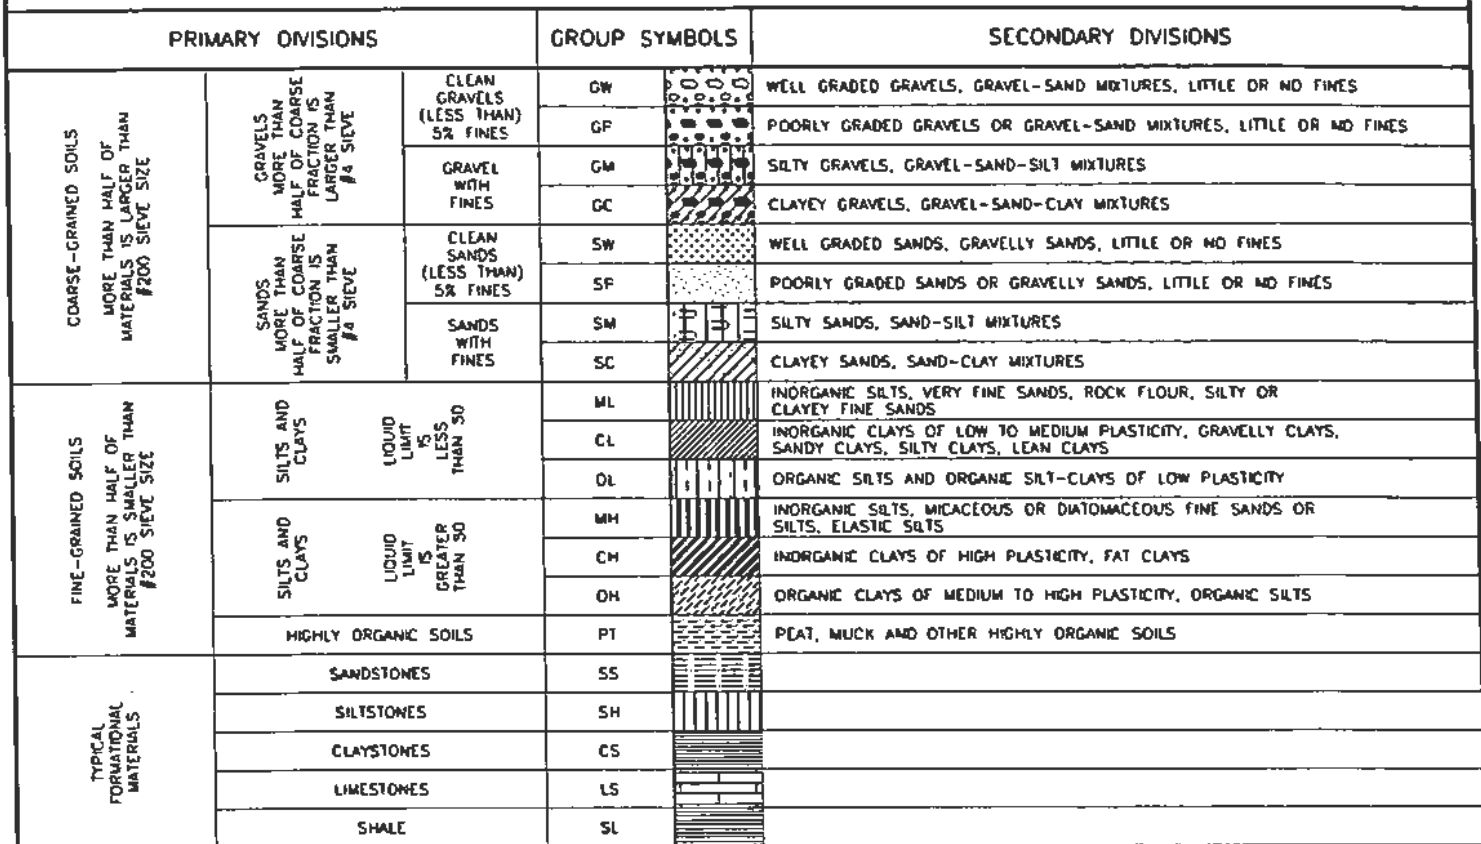 PRIMARY DIVISIONS
GROUP SYMBOLS
SECONDARY DIVISIONS
COARSE-GRAINED SOILS
MORE THAN HALF OF
MATERIALS IS LARGER THAN
#200 SIEVE SIZE
GRAVELS
MORE THAN
HALF OF COARSE
FRACTION IS
LARGER THAN
#4 SIEVE
CLEAN
GRAVELS
(LESS THAN)
5% FINES
GW
WELL GRADED GRAVELS, GRAVEL-SAND MIXTURES, LITTLE OR NO FINES
GP
POORLY GRADED GRAVELS OR GRAVEL-SAND MIXTURES, LITTLE OR NO FINES
GRAVEL
WITH
FINES
GM
SILTY GRAVELS, GRAVEL-SAND-SILT MIXTURES
GC
CLAYEY GRAVELS, GRAVEL-SAND-CLAY MIXTURES
SANDS
MORE THAN
HALF OF COARSE
FRACTION IS
SMALLER THAN
#4 SIEVE
CLEAN
SANDS
(LESS THAN)
5% FINES
SW
WELL GRADED SANDS, GRAVELLY SANDS, LITTLE OR NO FINES
SP
POORLY GRADED SANDS OR GRAVELLY SANDS, LITTLE OR NO FINES
SANDS
WITH
FINES
SM
SILTY SANDS, SAND-SILT MIXTURES
SC
CLAYEY SANDS, SAND-CLAY MIXTURES
FINE-GRAINED SOILS
MORE THAN HALF OF
MATERIALS IS SMALLER THAN
#200 SIEVE SIZE
SILTS AND
CLAYS
LIQUID
LIMIT
IS
LESS
THAN 50
ML
INORGANIC SILTS, VERY FINE SANDS, ROCK FLOUR, SILTY OR
CLAYEY FINE SANDS
CL
INORGANIC CLAYS OF LOW TO MEDIUM PLASTICITY, GRAVELLY CLAYS,
SANDY CLAYS, SILTY CLAYS, LEAN CLAYS
OL
ORGANIC SILTS AND ORGANIC SILT-CLAYS OF LOW PLASTICITY
SILTS AND
CLAYS
LIQUID
LIMIT
IS
GREATER
THAN 50
MH
INORGANIC SILTS, MICACEOUS OR DIATOMACEOUS FINE SANDS OR
SILTS, ELASTIC SILTS
CH
INORGANIC CLAYS OF HIGH PLASTICITY, FAT CLAYS
OH
ORGANIC CLAYS OF MEDIUM TO HIGH PLASTICITY, ORGANIC SILTS
HIGHLY ORGANIC SOILS
PT
PEAT, MUCK AND OTHER HIGHLY ORGANIC SOILS
TYPICAL
FORMATIONAL
MATERIALS
SANDSTONES
SS
SILTSTONES
SH
CLAYSTONES
CS
LIMESTONES
LS
SHALE
SL